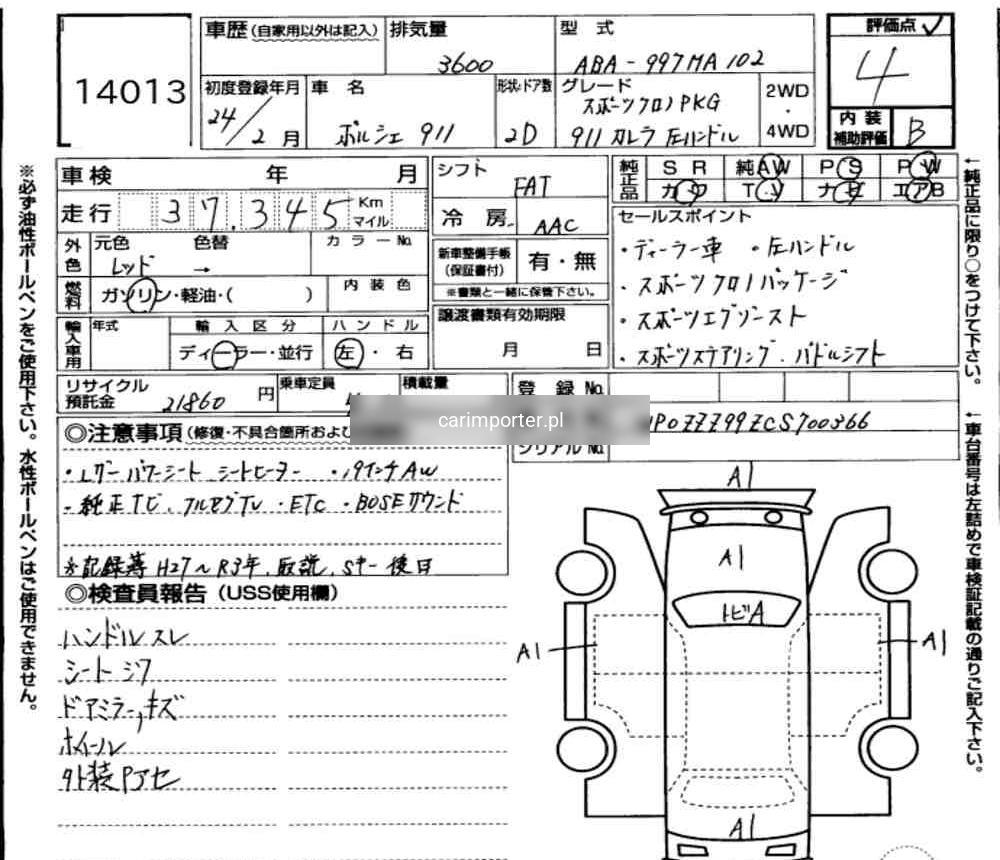 14013
車歴(自家用以外は記入)
排気量
3600
型式
ABA-997MA102
評価点
4
初度登録年月
24/2月
車名
ポルシェ 911
形状・ドア数
2D
グレード
スポーツクロノPKG
911 カレラ 左ハンドル
2WD
・
4WD
内装
補助評価
B
車検 年 月
走行 37.345 Km
マイル
シフト
FAT
冷房
AAC
純正品
SR 純AW PS PW
TV エアB
外色
元色 色替 カラーNo.
レッド →
燃料
ガソリン・軽油・( )
内装色
新車整備手帳
(保証書付)
有・無
※書類と一緒に保管下さい。
セールスポイント
・ディーラー車 ・左ハンドル
・スポーツクロノパッケージ
・スポーツエグゾースト
・スポーツステアリング、パドルシフト
輸入車用
年式
輸入区分
ディーラー・並行
ハンドル
左・右
譲渡書類有効期限
月 日
リサイクル
預託金
21860円
乗車定員
積載量
登録No.
carimporter.pl
WP0ZZZ99ZCS700366
シリアルNo.
◎注意事項(修復・不具合箇所およ
・レザーパワーシート シートヒーター ・19インチAW
・純正TC、フルセグTV ・ETC ・BOSEサウンド
※記録簿H27~R3年、取説、Sキー後日
◎検査員報告(USS使用欄)
ハンドルスレ
シートシワ
ドアミラー、キズ
ホイール
外装Pアセ
A1
A1
トビA
A1
A1
A1
※必ず油性ボールペンをご使用下さい。水性ボールペンはご使用できません。
←純正品に限り○をつけて下さい。
←車台番号は左詰めで車検証記載の通りご記入下さい。